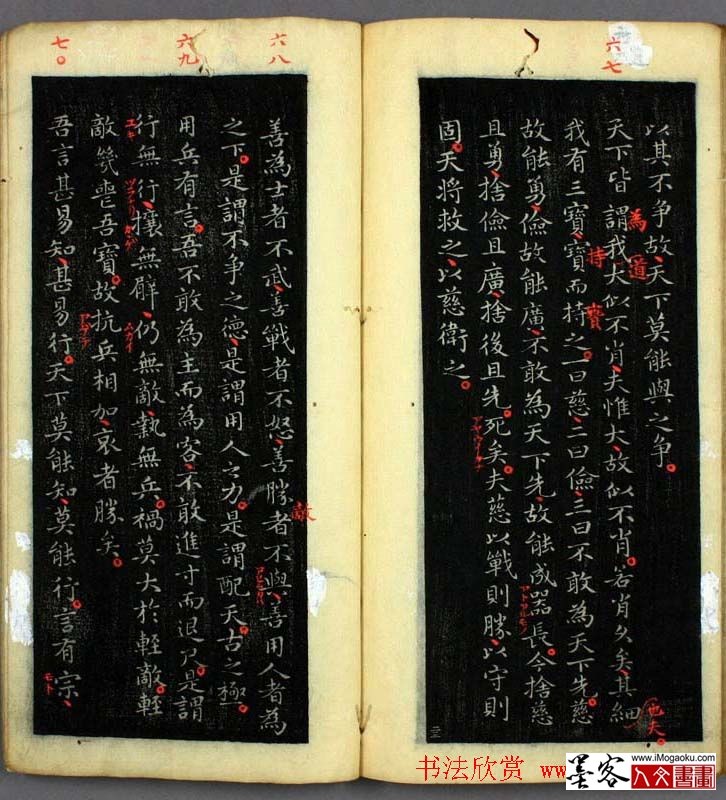 六七
以其不争故天下莫能與之争
天下皆謂我大似不肖夫惟大故似不肖若肖久矣其細
為道
也夫
我有三寶寶而持之一曰慈二曰儉三曰不敢為天下先慈
持
寶
故能勇儉故能廣不敢為天下先故能成器長今捨慈
且勇捨儉且廣捨後且先死矣夫慈以戰則勝以守則
固天將救之以慈衛之
六八
善為士者不武善戰者不怒善勝者不與善用人者為
敵
之下是謂不争之德是謂用人之力是謂配天古之極
六九
用兵有言吾不敢為主而為客不敢進寸而退尺是謂
行無行攘無臂仍無敵執無兵禍莫大於輕敵輕
敵幾喪吾寶故抗兵相加哀者勝矣
七〇
吾言甚易知甚易行天下莫能知莫能行言有宗
モト
书法欣赏
www.iMogaoku.com
墨客
人文書畫